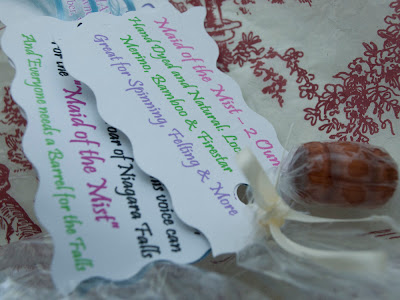 Maid of the Mist - 2 Oun
Hand Dyed and Natural: Loc
Merino, Bamboo & Firestar
Great for Spinning, Felting & More
his voice can
oar of Niagara Falls
"Maid of the Mist"
And Everyone needs a Barrel for the Falls